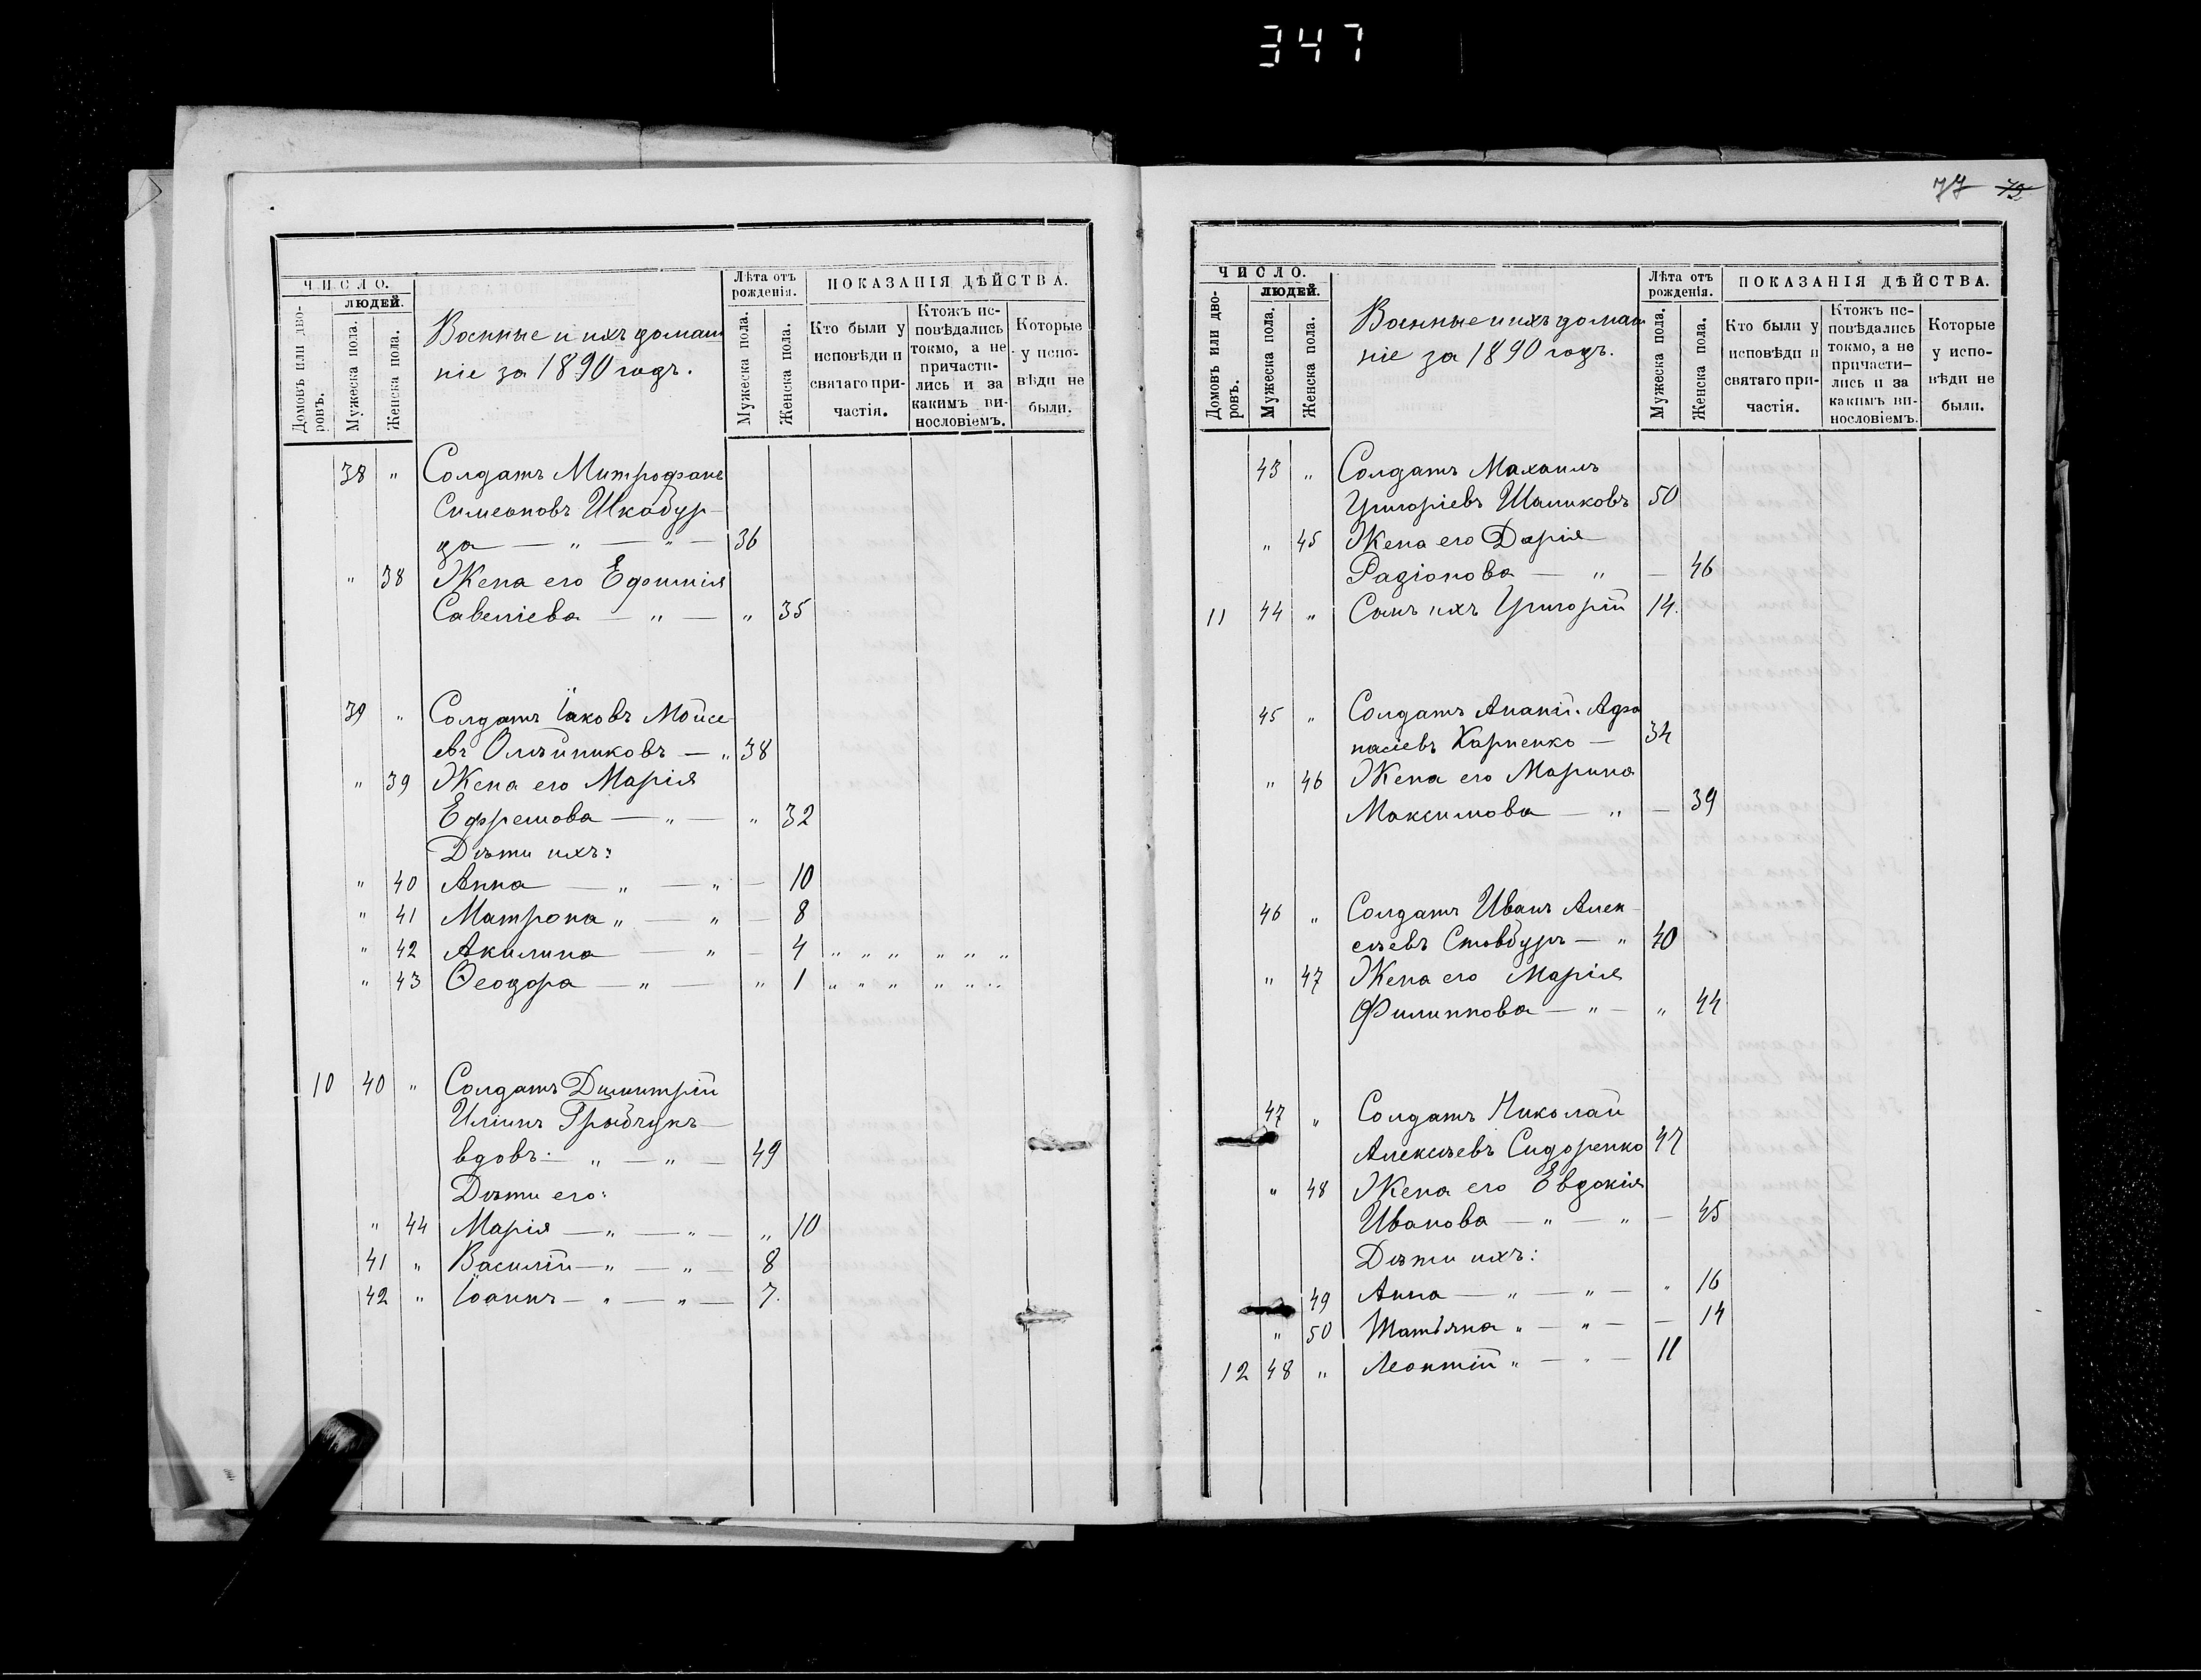 347
ЧИСЛО.
ЛЮДЕЙ.
Домовъ или дворовъ.
Мужеска пола.
Женска пола.
Военные и ихъ домаш
ніе за 1890 годъ.
Лѣта отъ рожденія.
Мужеска пола.
Женска пола.
ПОКАЗАНІЯ ДѢЙСТВА.
Кто были у исповѣди и святаго причастія.
Ктожъ исповѣдались токмо, а не причастились и за какимъ винословіемъ.
Которые у исповѣди не были.
38 " Солдатъ Митрофанъ
Симеоновъ Шкабур-
да — " — " — 36
" 38 Жена его
Савеліева — " — " 35
39 " Солдатъ Іаковъ Мойсе
евъ Олѣйниковъ — " 38
" 39 Жена его Марія
Ефремова — " — " 32
Дѣти ихъ:
" 40 Анна — " — " — 10
" 41 Матрона " — " — 8
" 42 Акилина — " — 4 " " " " " "
" 43 Ѳеодора — " — " 1 " " " " " "
10 40 " Солдатъ Димитрій
Иліинъ Грыбчукъ —
вдовъ. — " — " — 49
Дѣти его:
" 44 Марія — " — " — " 10
41 " Василій — " — " — 8
42 " Іоаннъ — " — " — 7.
77 72
ЧИСЛО.
ЛЮДЕЙ.
Домовъ или дворовъ.
Мужеска пола.
Женска пола.
Военные и ихъ домаш
ніе за 1890 годъ.
Лѣта отъ рожденія.
Мужеска пола.
Женска пола.
ПОКАЗАНІЯ ДѢЙСТВА.
Кто были у исповѣди и святаго причастія.
Ктожъ исповѣдались токмо, а не причастились и за какимъ винословіемъ.
Которые у исповѣди не были.
43 " Солдатъ Махаилъ
Григоріевъ Шаликовъ 50
" 45 Жена его Дарія
Радіонова — " — 46
11 44 " Сынъ ихъ Григорій 14.
45 " Солдатъ Ананій Афа
насіевъ Карпенко — 34
" 46 Жена его Марина
Максимова — " — 39
46 " Солдатъ Иванъ Алек-
сѣевъ Стовбуръ — " 40
" 47 Жена его Марія
Филиппова — " — " 44
47 " Солдатъ Николай
Алексѣевъ Сидоренко 47
" 48 Жена его Евдокія
Иванова — " — " — 45
Дѣти ихъ:
49 Анна — " — " — " 16
" 50 Татьяна " — " — — 14
12 48 " Леонтій " — " — 11